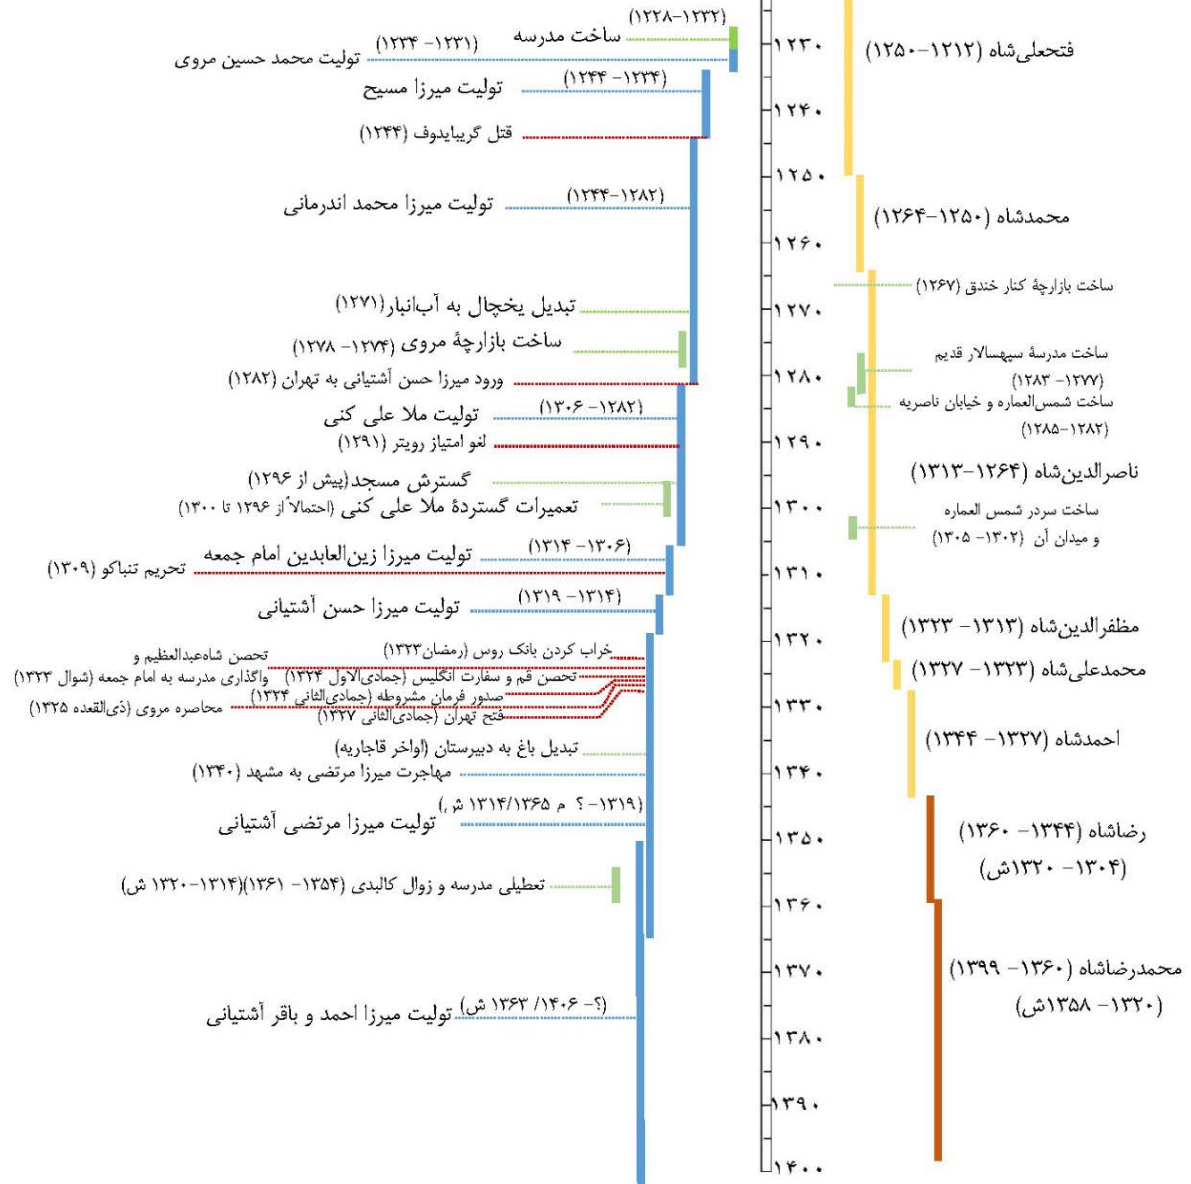 (۱۲۲۸-۱۲۳۲)
ساخت مدرسه
(۱۲۳۱- ۱۲۳۴)
تولیت محمد حسین مروی
(۱۲۳۴- ۱۲۴۴)
تولیت میرزا مسیح
قتل گریبایدوف (۱۲۴۴)
(۱۲۴۴-۱۲۸۲)
تولیت میرزا محمد اندرمانی
تبدیل یخچال به آب‌انبار(۱۲۷۱)
ساخت بازارچهٔ مروی (۱۲۷۴- ۱۲۷۸)
ورود میرزا حسن آشتیانی به تهران (۱۲۸۲)
(۱۲۸۲- ۱۳۰۶)
تولیت ملا علی کنی
لغو امتیاز رویتر (۱۲۹۱)
گسترش مسجد(پیش از ۱۲۹۶)
تعمیرات گستردهٔ ملا علی کنی (احتمالاً از ۱۲۹۶ تا ۱۳۰۰)
(۱۳۰۶- ۱۳۱۴)
تولیت میرزا زین‌العابدین امام جمعه
تحریم تنباکو (۱۳۰۹)
(۱۳۱۴- ۱۳۱۹)
تولیت میرزا حسن آشتیانی
خراب کردن بانک روس (رمضان۱۳۲۳)
تحصن شاه‌عبدالعظیم و
واگذاری مدرسه به امام جمعه (شوال ۱۳۲۳)
تحصن قم و سفارت انگلیس (جمادی‌الاول ۱۳۲۴)
صدور فرمان مشروطه (جمادی‌الثانی ۱۳۲۴)
محاصره مروی (ذی‌القعده ۱۳۲۵)
فتح تهران (جمادی‌الثانی ۱۳۲۷)
تبدیل باغ به دبیرستان (اواخر قاجاریه)
مهاجرت میرزا مرتضی به مشهد (۱۳۴۰)
(۱۳۱۹- ؟ م ۱۳۱۴/۱۳۶۵ ش)
تولیت میرزا مرتضی آشتیانی
تعطیلی مدرسه و زوال کالبدی (۱۳۵۴- ۱۳۶۱)(۱۳۱۴-۱۳۲۰ ش)
(؟- ۱۴۰۶/ ۱۳۶۳ ش)
تولیت میرزا احمد و باقر آشتیانی
۱۲۳۰
۱۲۴۰
۱۲۵۰
۱۲۶۰
۱۲۷۰
۱۲۸۰
۱۲۹۰
۱۳۰۰
۱۳۱۰
۱۳۲۰
۱۳۳۰
۱۳۴۰
۱۳۵۰
۱۳۶۰
۱۳۷۰
۱۳۸۰
۱۳۹۰
۱۴۰۰
فتحعلی‌شاه (۱۲۱۲-۱۲۵۰)
محمدشاه (۱۲۵۰-۱۲۶۴)
ساخت بازارچهٔ کنار خندق (۱۲۶۷)
ساخت مدرسهٔ سپهسالار قدیم
(۱۲۷۷- ۱۲۸۳)
ساخت شمس‌العماره و خیابان ناصریه
(۱۲۸۲-۱۲۸۵)
ناصرالدین‌شاه (۱۲۶۴-۱۳۱۳)
ساخت سردر شمس العماره
و میدان آن (۱۳۰۲- ۱۳۰۵)
مظفرالدین‌شاه (۱۳۱۳- ۱۳۲۳)
محمدعلی‌شاه (۱۳۲۳- ۱۳۲۷)
احمدشاه (۱۳۲۷- ۱۳۴۴)
رضاشاه (۱۳۴۴- ۱۳۶۰)
(۱۳۰۴- ۱۳۲۰ش)
محمدرضاشاه (۱۳۶۰- ۱۳۹۹)
(۱۳۲۰- ۱۳۵۸ش)